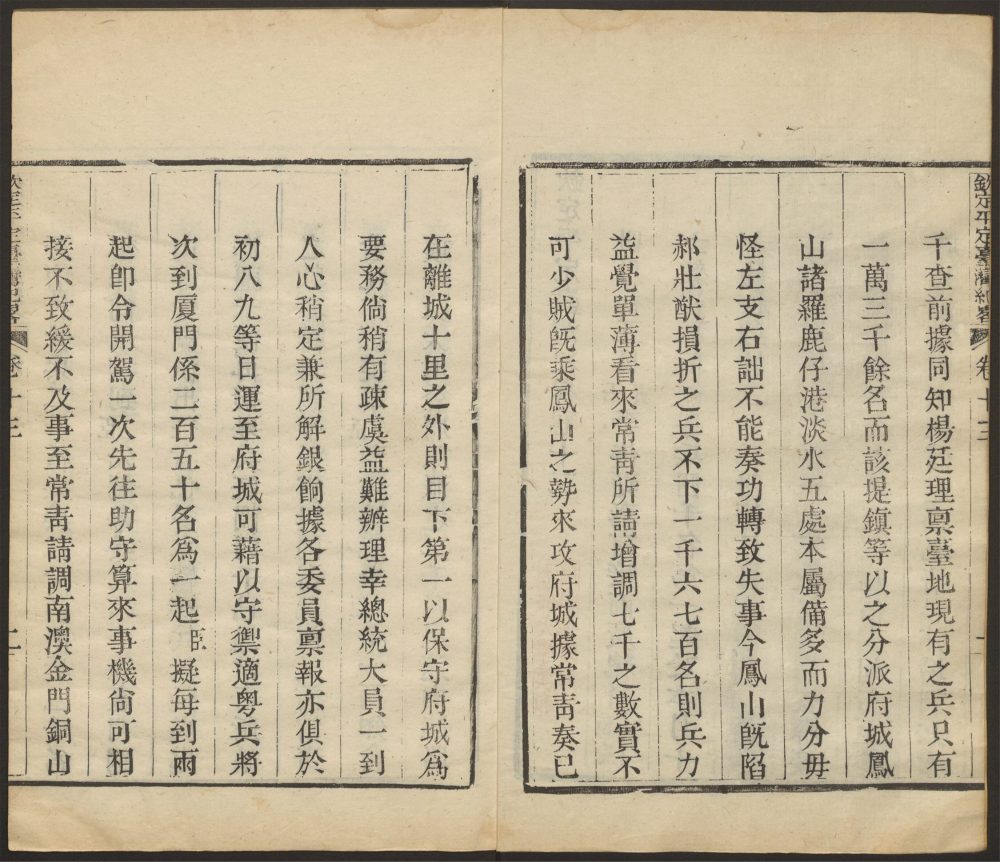 欽定平定臺灣紀畧 卷十三
千查前據同知楊廷理稟臺地現有之兵只有
一萬三千餘名而該提鎮等以之分派府城鳳
山諸羅鹿仔港淡水五處本屬備多而力分毋
怪左支右詘不能奏功轉致失事今鳳山旣陷
郝壯猷損折之兵不下一千六七百名則兵力
益覺單薄看來常靑所請增調七千之數實不
可少賊旣乘鳳山之勢來攻府城據常靑奏已
在離城十里之外則目下第一以保守府城爲
要務倘稍有疎虞益難辦理幸總統大員一到
人心稍定兼所解銀餉據各委員稟報亦俱於
初八九等日運至府城可藉以守禦適粤兵將
次到厦門係二百五十名爲一起臣擬每到兩
起卽令開駕一次先往助守算來事機尙可相
接不致緩不及事至常靑請調南澳金門銅山
欽定平定臺灣紀畧 卷十三 二